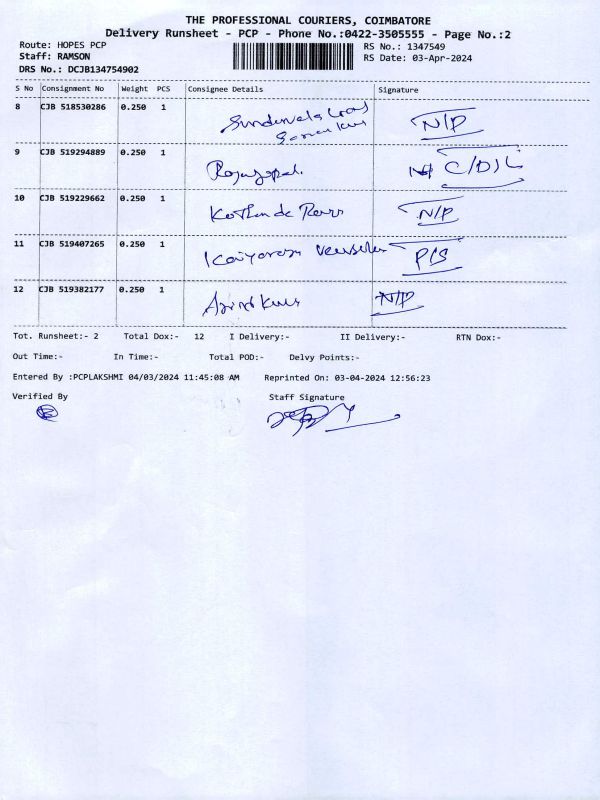 THE PROFESSIONAL COURIERS, COIMBATORE
Delivery Runsheet - PCP - Phone No.:0422-3505555 - Page No.:2
Route: HOPES PCP RS No.: 1347549
Staff: RAMSON RS Date: 03-Apr-2024
DRS No.: DCJB134754902
S No Consignment No Weight PCS Consignee Details Signature
8 CJB 518530286 0.250 1 N/P
9 CJB 519294889 0.250 1 Rajagopal. C/D/L
10 CJB 519229662 0.250 1 N/P
11 CJB 519407265 0.250 1 P/S
12 CJB 519382177 0.250 1 N/P
Tot. Runsheet:- 2 Total Dox:- 12 I Delivery:- II Delivery:- RTN Dox:-
Out Time:- In Time:- Total POD:- Delvy Points:-
Entered By :PCPLAKSHMI 04/03/2024 11:45:08 AM Reprinted On: 03-04-2024 12:56:23
Verified By Staff Signature